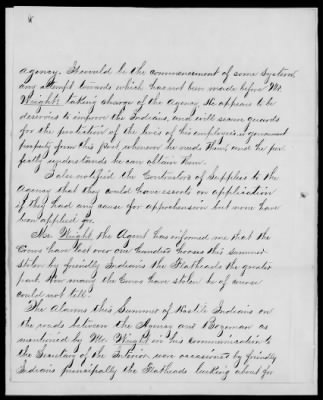 8
agency. It would be the commencement of some System
any attempt towards which has not been made before Mr.
Wright's taking charge of the Agency. He appears to be
desirous to improve the Indians, and will secure guards
for the protection of the lives of his employees & government
property from this post whenever he needs them, and he per-
fectly understands he can obtain them.
I also notified the Contractors of Supplies to the
Agency that they could have escorts on application
if they had any cause for apprehension but none have
been applied for.
Mr. Wright the Agent has informed me that the
Crows have lost over one hundred horses this summer
stolen by friendly Indians the Flatheads the greater
part. How many the Crows have stolen he of course
could not tell.
The Alarms this Summer of Hostile Indians on
the roads between the Agency and Bozeman as
mentioned by Mr. Wright in his communication to
the Secretary of the Interior were occasioned by friendly
Indians principally the Flatheads lurking about for